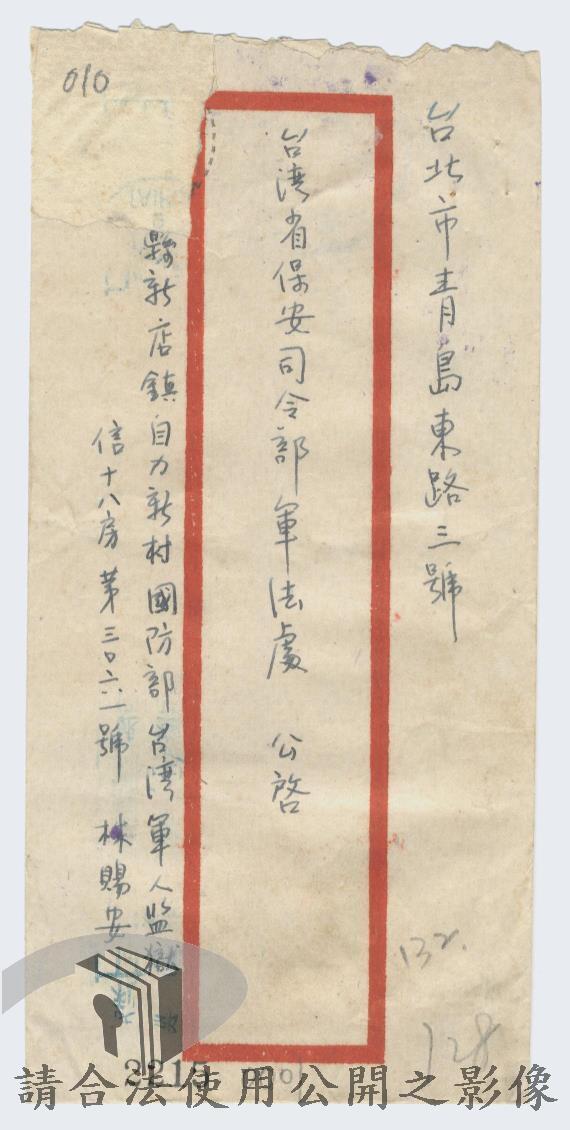 台北市青島東路三號
台湾省保安司令部軍法處 公啓
縣新店鎮自力新村國防部台湾軍人監獄
信十八房第三〇六一號 林賜安
010
132.
128
2215
請合法使用公開之影像